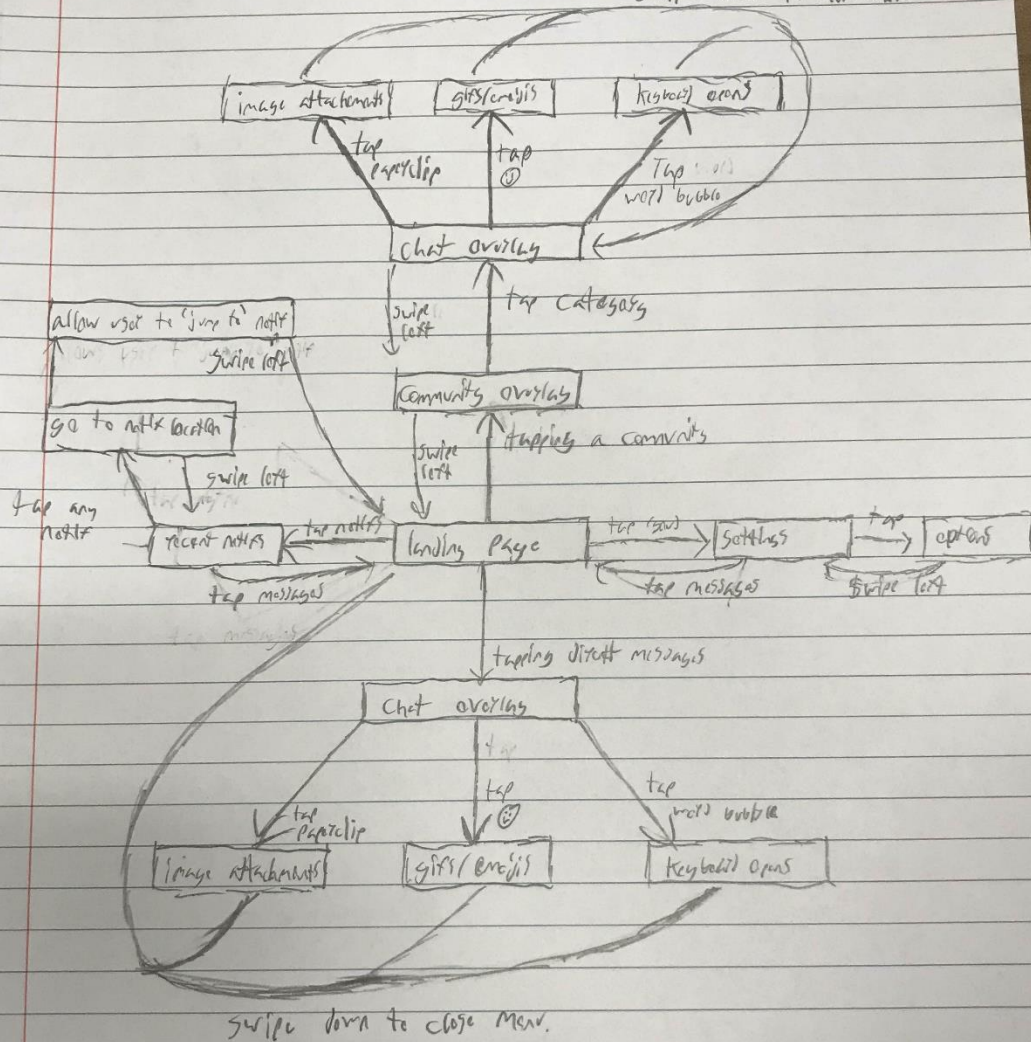 image attachements
gifs/emojis
keyboard opens
tap
paperclip
tap
Tap
word bubble
Chat overlay
swipe
left
tap category
allow user to "jump to" notif
swipe left
Community overlay
go to notif location
swipe
left
tapping a community
swipe left
tap any
notif
recent notifs
tap notifs
landing page
settings
tap
options
tap messages
tap messages
swipe left
tapping direct messages
Chat overlay
tap
paperclip
tap
tap
word bubble
image attachments
gifs/emojis
keyboard opens
swipe down to close menu.